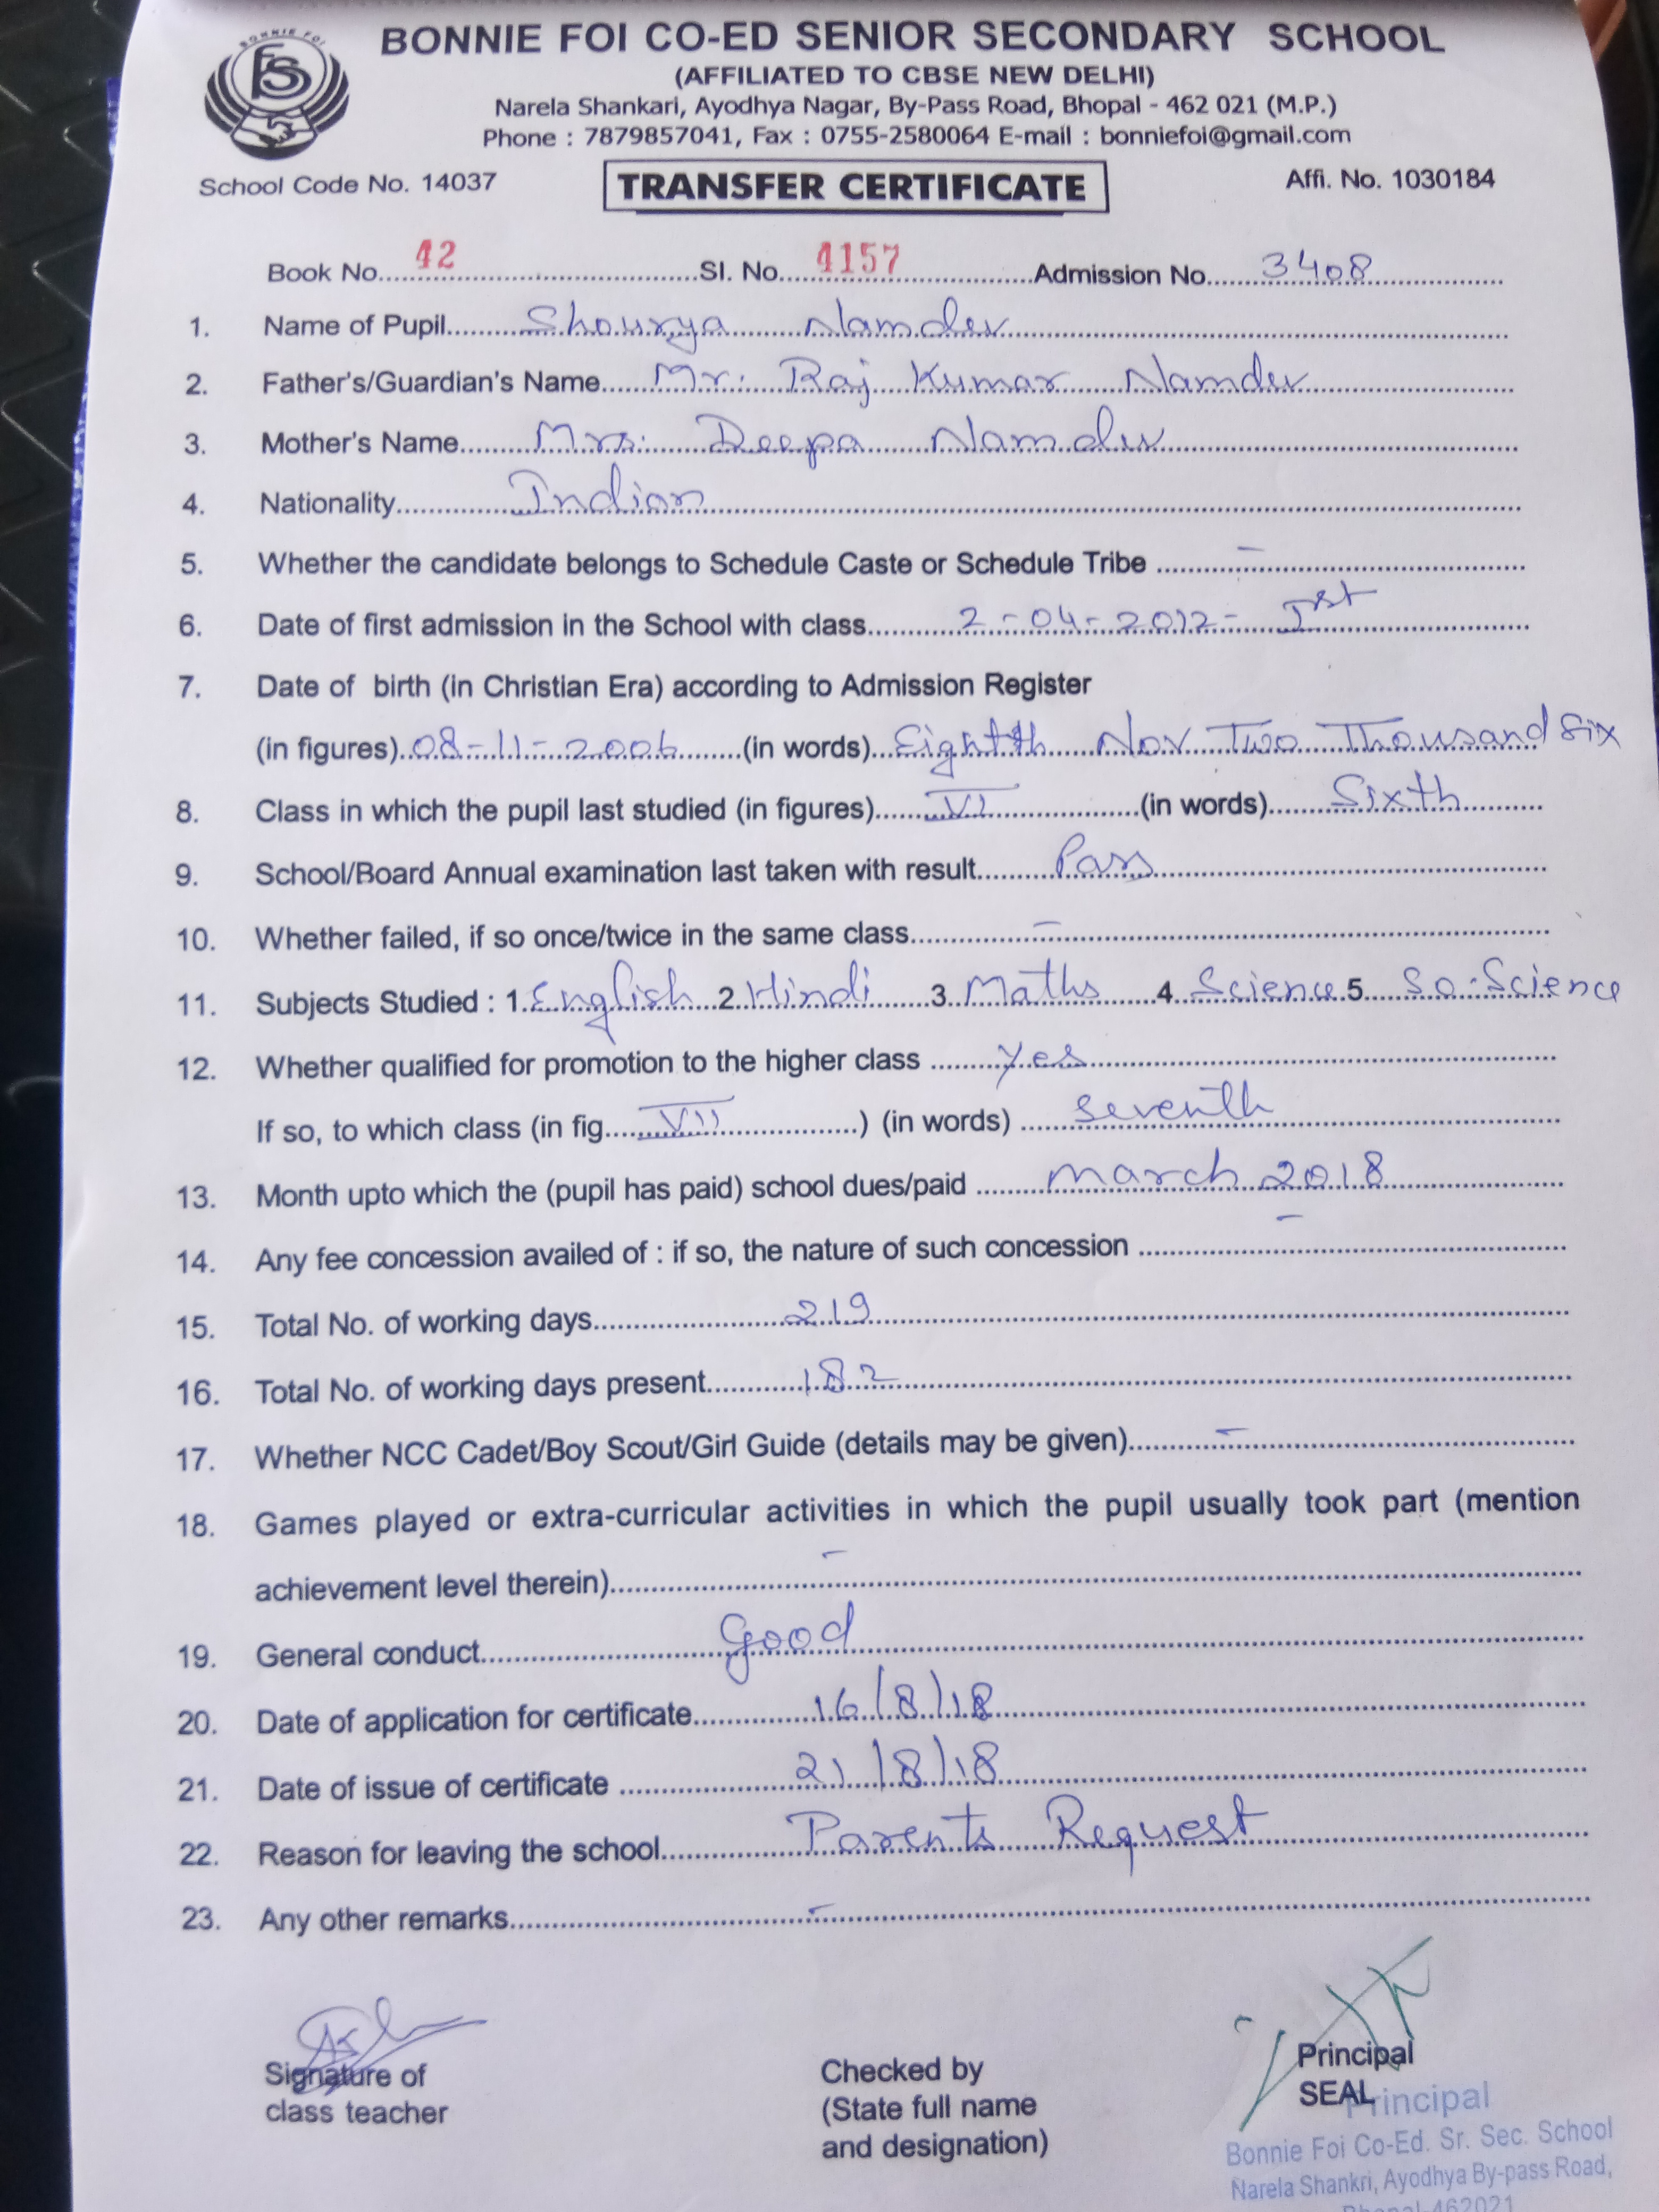 BONNIE FOI
BFS
BONNIE FOI CO-ED SENIOR SECONDARY SCHOOL
(AFFILIATED TO CBSE NEW DELHI)
Narela Shankari, Ayodhya Nagar, By-Pass Road, Bhopal - 462 021 (M.P.)
Phone : 7879857041, Fax : 0755-2580064 E-mail : bonniefoi@gmail.com
School Code No. 14037 TRANSFER CERTIFICATE Affi. No. 1030184
Book No. 42 Sl. No. 4157 Admission No. 3408
1. Name of Pupil Shourya Namdev
2. Father's/Guardian's Name Mr. Raj Kumar Namdev
3. Mother's Name Mrs. Deepa Namdev
4. Nationality Indian
5. Whether the candidate belongs to Schedule Caste or Schedule Tribe -
6. Date of first admission in the School with class 2-04-2012- Ist
7. Date of birth (in Christian Era) according to Admission Register
(in figures) 08-11-2006 (in words) Eighth Nov Two Thousand Six
8. Class in which the pupil last studied (in figures) VI (in words) Sixth
9. School/Board Annual examination last taken with result Pass
10. Whether failed, if so once/twice in the same class -
11. Subjects Studied : 1. English 2. Hindi 3. Maths 4. Science 5. So. Science
12. Whether qualified for promotion to the higher class Yes
If so, to which class (in fig. VII ) (in words) Seventh
13. Month upto which the (pupil has paid) school dues/paid March 2018
14. Any fee concession availed of : if so, the nature of such concession -
15. Total No. of working days 219
16. Total No. of working days present 182
17. Whether NCC Cadet/Boy Scout/Girl Guide (details may be given) -
18. Games played or extra-curricular activities in which the pupil usually took part (mention
achievement level therein) -
19. General conduct Good
20. Date of application for certificate 16/8/18
21. Date of issue of certificate 21/8/18
22. Reason for leaving the school Parents Request
23. Any other remarks -
Signature of
class teacher
Checked by
(State full name
and designation)
Principal
SEAL
Principal
Bonnie Foi Co-Ed. Sr. Sec. School
Narela Shankri, Ayodhya By-pass Road,
Bhopal-462021